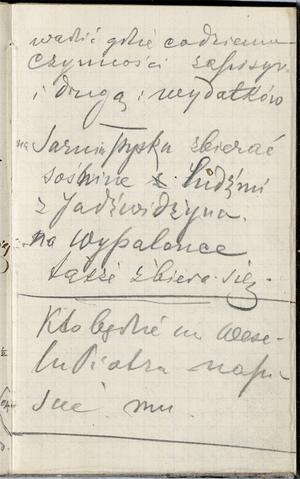 wadić gdzie codzienn
czynności zapisyw
i drugą i wydatków
na Sarnie zbierać
sośninę z ludźmi
z Jadźwidzyna.
na wypalonce
także zbiera się.
Kto będzie na wese-
lu Piotra napi-
sać mu